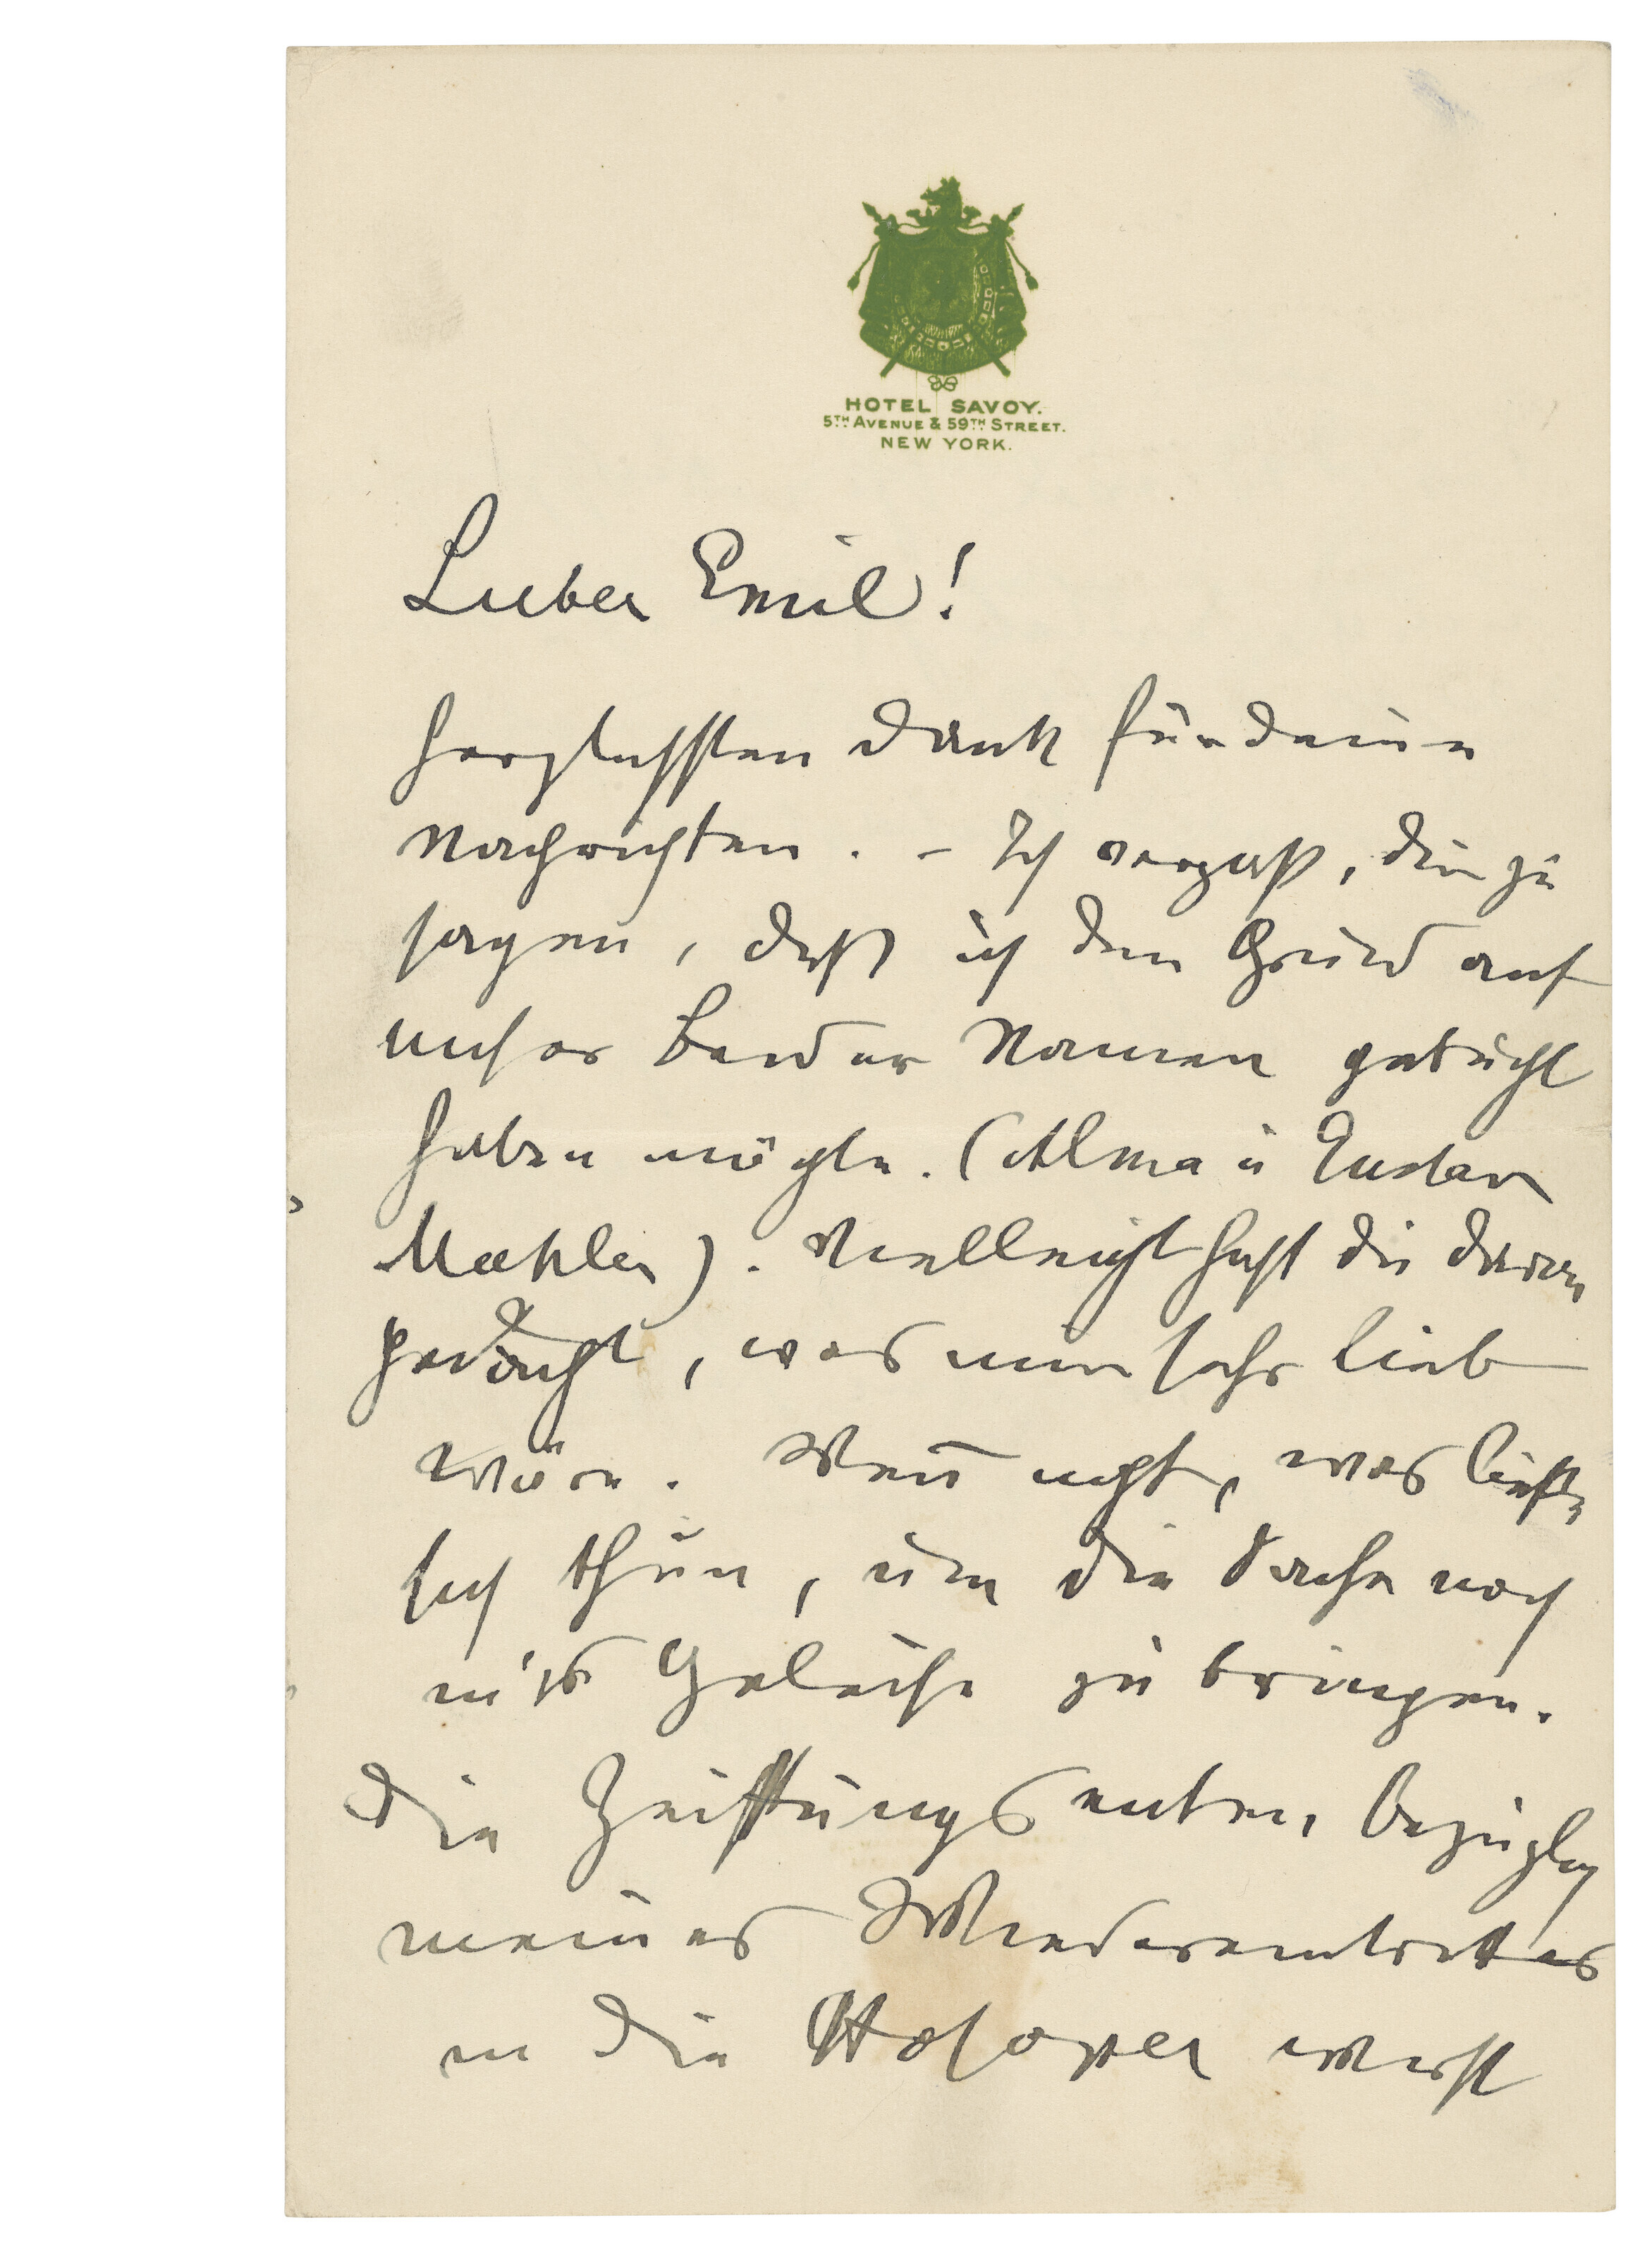 HOTEL SAVOY.
5TH AVENUE & 59TH STREET.
NEW YORK.
Lieber Emil!
Herzlichsten Dank für deine
Nachrichten. – Ich vergaß, dir zu
sagen, daß ich den Grund auf
unser Beider Namen gebucht
haben möchte. (Alma u Gustav
Mahler). Vielleicht hast du daran
gedacht, was mir sehr lieb
wäre. Wenn nicht, was ließe
sich thun, um die Sache noch
in's Geleise zu bringen.
Die Zeitungsenten bezüglich
meines Wiedereintrittes
in die Hofoper wirst